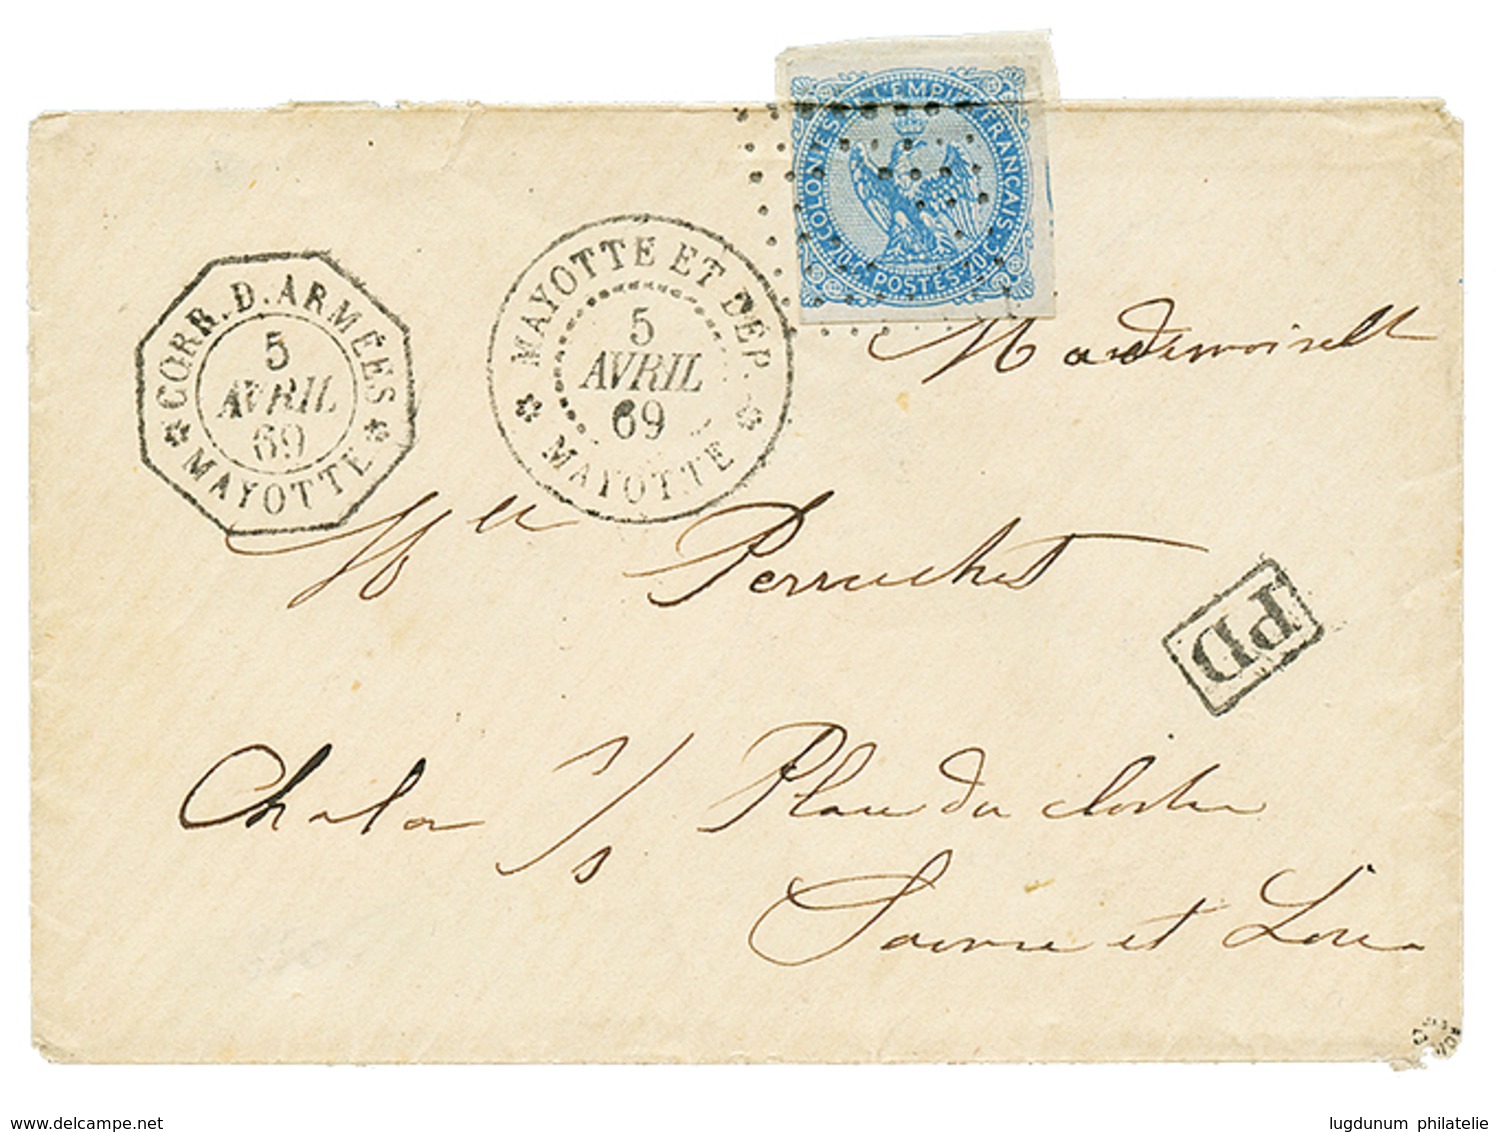 COLONIES DE L'EMPIRE FRANÇAIS
20 C. POSTES. 20 C.
CORR. D. ARMÉES
5
AVRIL
69
MAYOTTE
MAYOTTE ET DÉP.
5
AVRIL
69
MAYOTTE
Mademoiselle
Mlle Perruchot
PD
Chalon s/s Place du cloître
Saône et Loire
www.delcampe.net
lugdunum philatelie